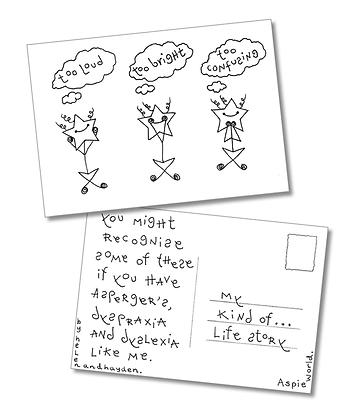 too loud
too bright
too
confusing
You might
Recognise
some of these
if you have
Asperger's,
dyspraxia
and dyslexia
Like me.
by helen andhayden.
My
Kind of...
Life story
Aspieworld.